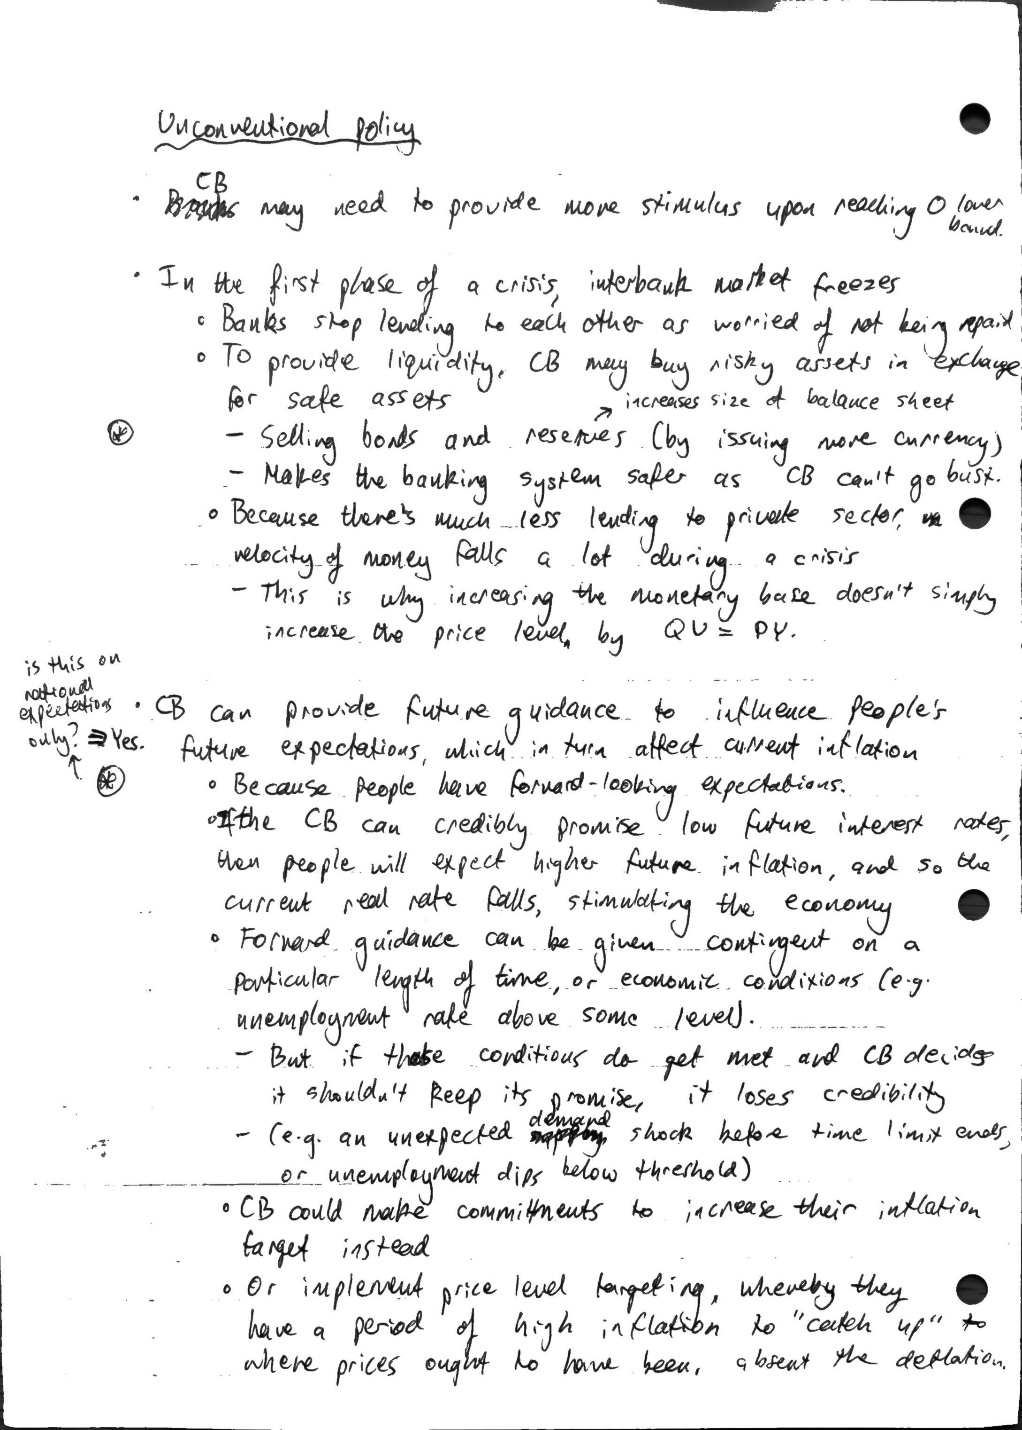 Unconventional policy
CB
· may need to provide more stimulus upon reaching 0 lower
bound.
· In the first phase of a crisis, interbank market freezes
◦ Banks stop lending to each other as worried of not being repaid
◦ To provide liquidity, CB may buy risky assets in exchange
for safe assets
↗ increases size of balance sheet
⊛ – Selling bonds and reserves (by issuing more currency)
– Makes the banking system safer as CB can't go bust.
◦ Because there's much less lending to private sector,
velocity of money falls a lot during a crisis
– This is why increasing the monetary base doesn't simply
increase the price level, by QV = PY.
is this on
rational
expectations
only? ⇒ Yes.
↑
⊛
· CB can provide future guidance to influence people's
future expectations, which in turn affect current inflation
◦ Because people have forward-looking expectations.
◦ If the CB can credibly promise low future interest rates,
then people will expect higher future inflation, and so the
current real rate falls, stimulating the economy
◦ Forward guidance can be given contingent on a
particular length of time, or economic conditions (e.g.
unemployment rate above some level).
– But if these conditions do get met and CB decides
it shouldn't keep its promise, it loses credibility
– (e.g. an unexpected demand shock before time limit ends,
or unemployment dips below threshold)
◦ CB could make committments to increase their inflation
target instead
◦ Or implement price level targeting, whereby they
have a period of high inflation to "catch up" to
where prices ought to have been, absent the deflation.